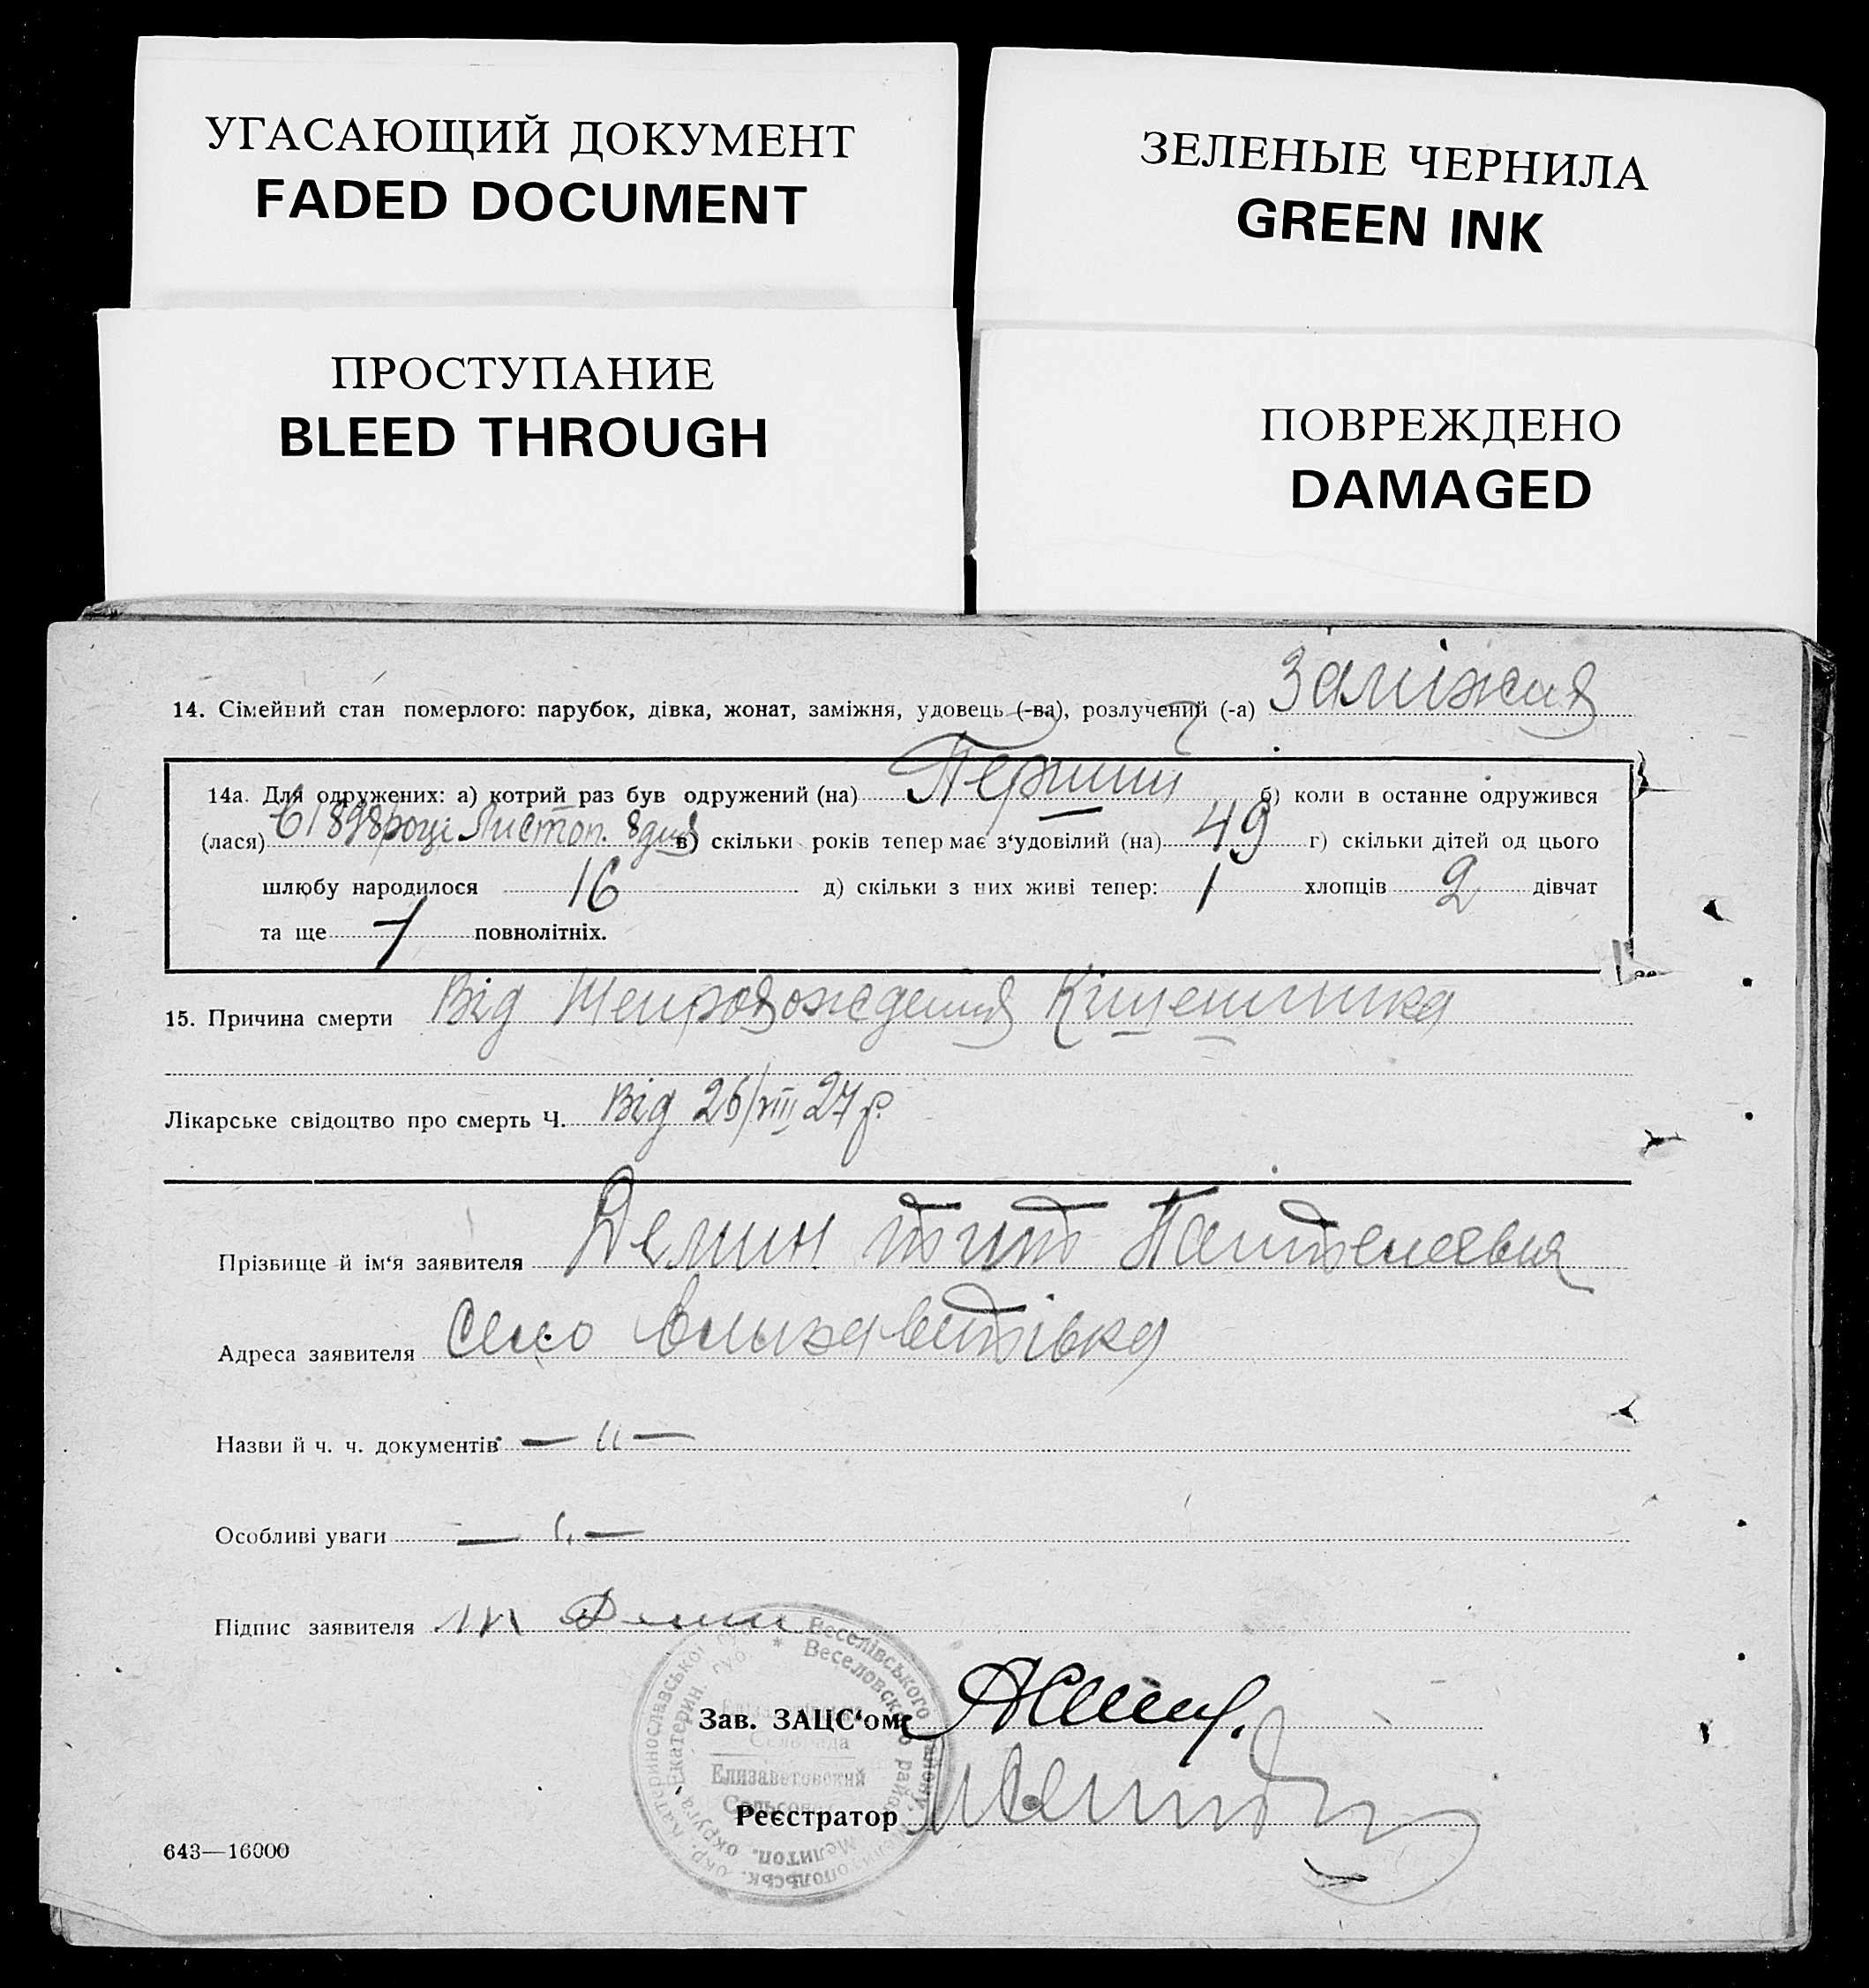 УГАСАЮЩИЙ ДОКУМЕНТ
FADED DOCUMENT
ЗЕЛЕНЫЕ ЧЕРНИЛА
GREEN INK
ПРОСТУПАНИЕ
BLEED THROUGH
ПОВРЕЖДЕНО
DAMAGED
14. Сімейний стан померлого: парубок, дівка, жонат, заміжня, удовець (-ва), розлучений (-а) Заміжня
14а. Для одружених: а) котрий раз був одружений (на) Перший б) коли в останнє одружився
(лася) 1898 році Листоп. 8 дня в) скільки років тепер має з'удовілий (на) 49 г) скільки дітей од цього
шлюбу народилося 16 д) скільки з них живі тепер: 1 хлопців 2 дівчат
та ще повнолітніх.
15. Причина смерти Від
Лікарське свідоцтво про смерть Ч. Від 26/VIII 27 р.
Прізвище й ім'я заявителя Демин Тит
Адреса заявителя Село
Назви й ч. ч. документів — „ —
Особливі уваги — „ —
Підпис заявителя
Веселівського
Веселовского
Екатерин.
Зав. ЗАЦС'ом
Елизаветовский
Реєстратор
643—16000